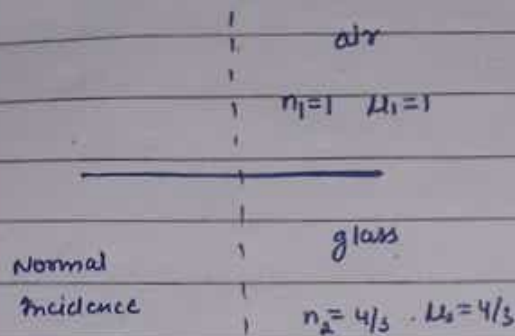 air
n₁=1 μ₁=1
glass
Normal
Incidence
n₂=4/3 . μ₂=4/3